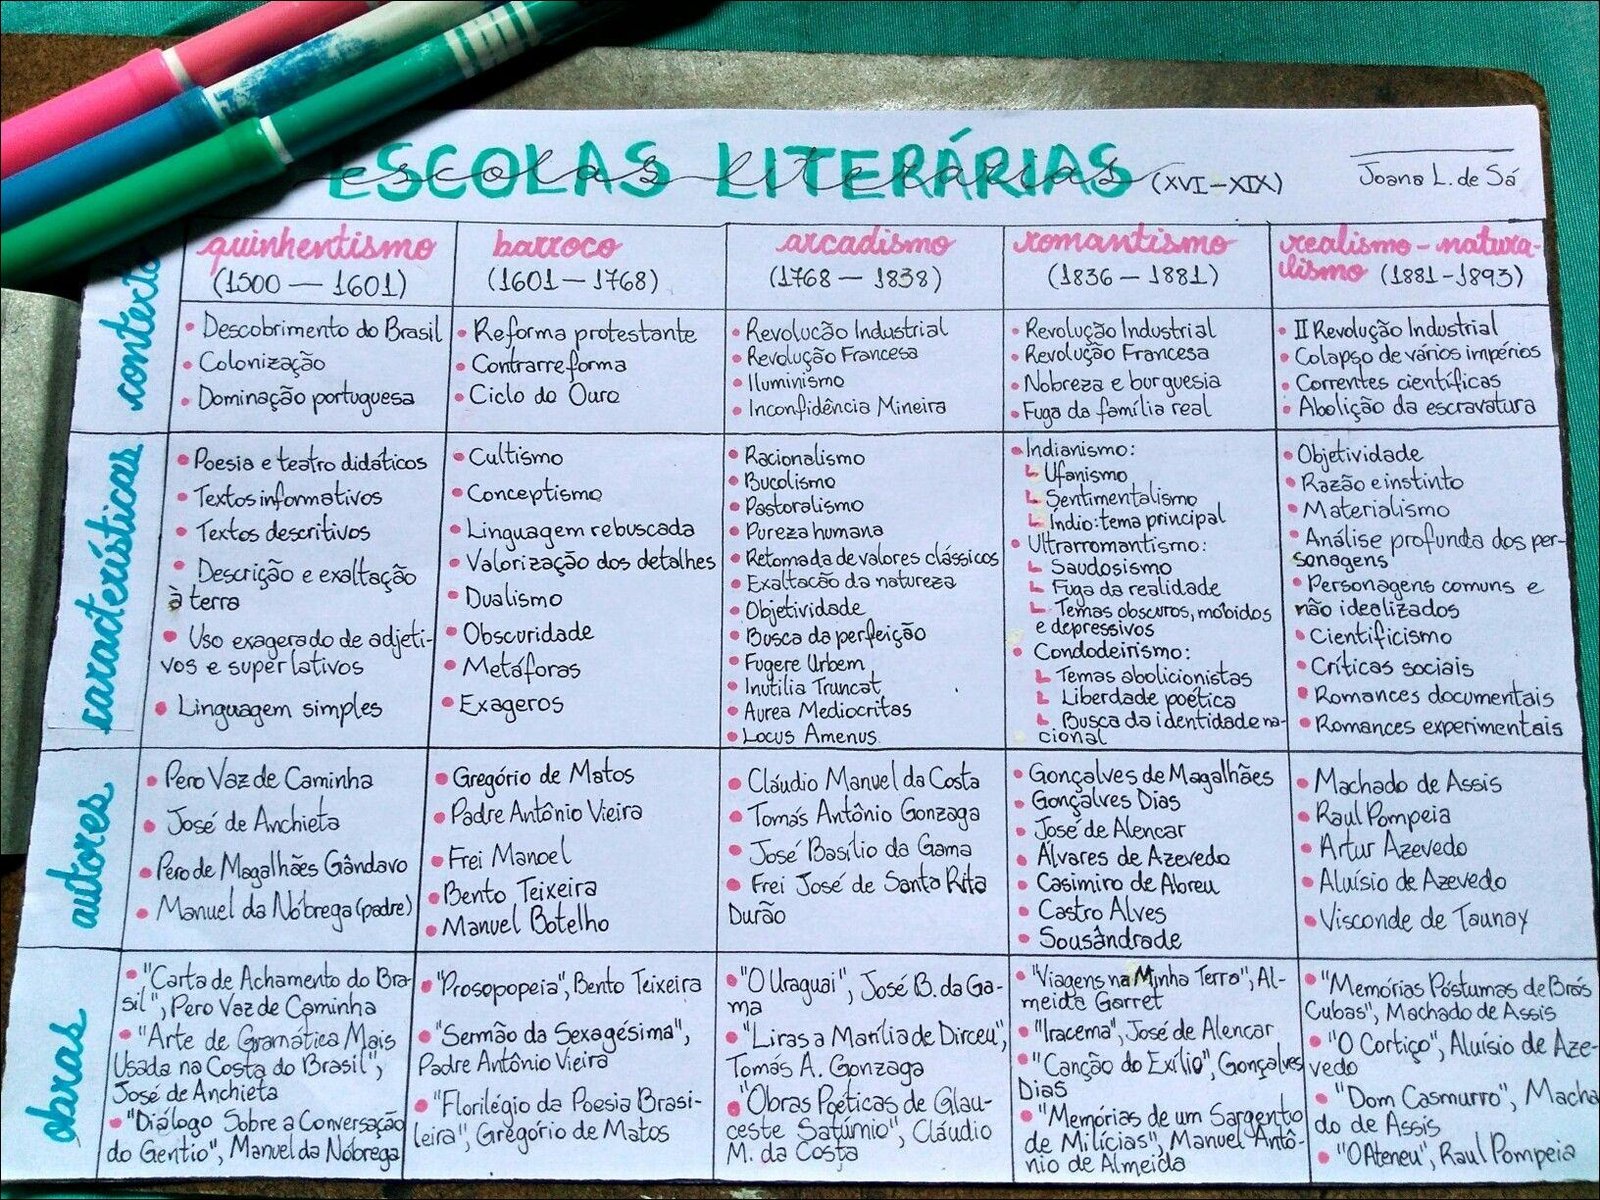 ESCOLAS LITERÁRIAS (XVI-XIX)
escolas literárias
Joana L. de Sá
contexto
quinhentismo
(1500 — 1601)
• Descobrimento do Brasil
• Colonização
• Dominação portuguesa
barroco
(1601 — 1768)
• Reforma protestante
• Contrarreforma
• Ciclo do Ouro
arcadismo
(1768 — 1838)
• Revolucão Industrial
• Revolução Francesa
• Iluminismo
• Inconfidência Mineira
romantismo
(1836 — 1881)
• Revolução Industrial
• Revolução Francesa
• Nobreza e burguesia
• Fuga da família real
realismo-natura-
lismo (1881-1893)
• II Revolução Industrial
• Colapso de vários impérios
• Correntes científicas
• Abolição da escravatura
características
• Poesia e teatro didáticos
• Textos informativos
• Textos descritivos
• Descrição e exaltação
à terra
• Uso exagerado de adjeti-
vos e superlativos
• Linguagem simples
• Cultismo
• Conceptismo
• Linguagem rebuscada
• Valorização dos detalhes
• Dualismo
• Obscuridade
• Metáforas
• Exageros
• Racionalismo
• Bucolismo
• Pastoralismo
• Pureza humana
• Retomada de valores clássicos
• Exaltacão da natureza
• Objetividade
• Busca da perfeição
• Fugere Urbem
• Inutilia Truncat
• Aurea Mediocritas
• Locus Amenus
• Indianismo:
Ufanismo
Sentimentalismo
Índio: tema principal
• Ultrarromantismo:
Saudosismo
Fuga da realidade
Temas obscuros, móbidos
e depressivos
• Condodeirismo:
Temas abolicionistas
Liberdade poética
Busca da identidade na-
cional
• Objetividade
• Razão e instinto
• Materialismo
• Análise profunda dos per-
sonagens
• Personagens comuns e
não idealizados
• Cientificismo
• Críticas sociais
• Romances documentais
• Romances experimentais
autores
• Pero Vaz de Caminha
• José de Anchieta
• Pero de Magalhães Gândavo
• Manuel da Nóbrega (padre)
• Gregório de Matos
• Padre Antônio Vieira
• Frei Manoel
• Bento Teixeira
• Manuel Botelho
• Cláudio Manuel da Costa
• Tomás Antônio Gonzaga
• José Basílio da Gama
• Frei José de Santa Rita
Durão
• Gonçalves de Magalhães
• Gonçalves Dias
• José de Alencar
• Álvares de Azevedo
• Casimiro de Abreu
• Castro Alves
• Sousândrade
• Machado de Assis
• Raul Pompeia
• Artur Azevedo
• Aluísio de Azevedo
• Visconde de Taunay
obras
• "Carta de Achamento do Bra-
sil", Pero Vaz de Caminha
• "Arte de Gramática Mais
Usada na Costa do Brasil",
José de Anchieta
• "Diálogo Sobre a Conversação
do Gentio", Manuel da Nóbrega
• "Prosopopeia", Bento Teixeira
• "Sermão da Sexagésima",
Padre Antônio Vieira
• "Florilégio da Poesia Brasi-
leira", Gregório de Matos
• "O Uraguai", José B. da Ga-
ma
• "Liras a Marília de Dirceu",
Tomás A. Gonzaga
• "Obras Poéticas de Glau-
ceste Satúrnio", Cláudio
M. da Costa
• "Viagens na Minha Terra", Al-
meida Garret
• "Iracema", José de Alencar
• "Canção do Exílio", Gonçalves
Dias
• "Memórias de um Sargento
de Milícias", Manuel Antô-
nio de Almeida
• "Memórias Póstumas de Brás
Cubas", Machado de Assis
• "O Cortiço", Aluísio de Aze-
vedo
• "Dom Casmurro", Macha
do de Assis
• "O Ateneu", Raul Pompeia